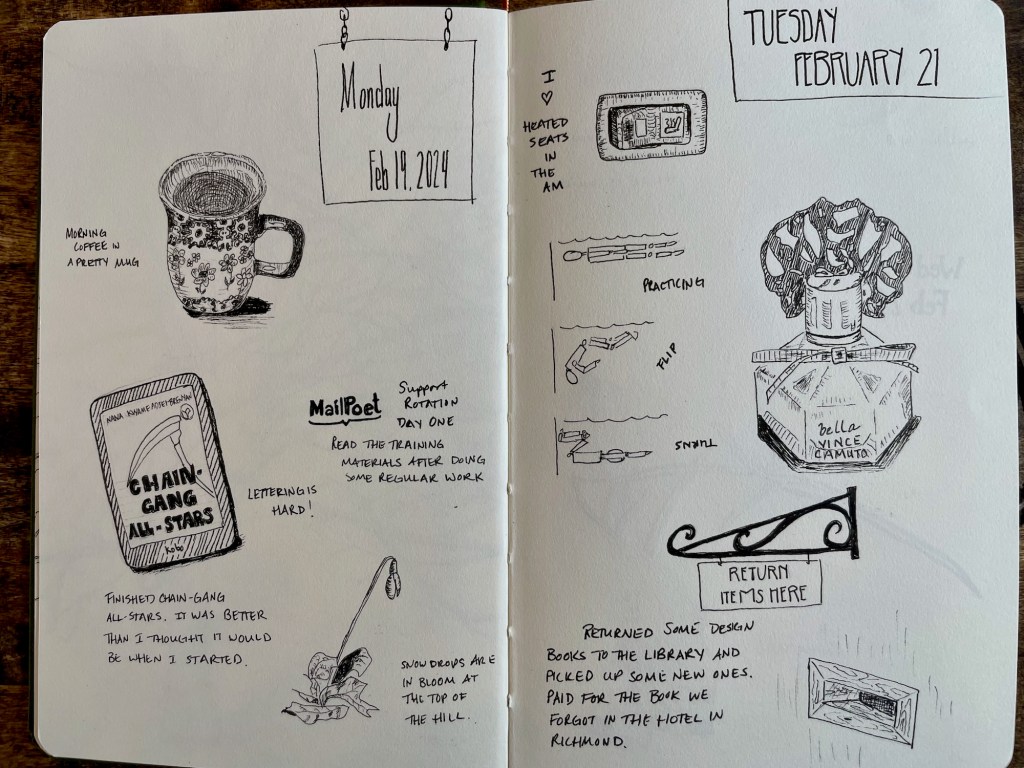 Monday
Feb 19, 2024
MORNING
COFFEE IN
A PRETTY MUG
NANA KWAME ADJEI-BRENYAH
CHAIN-
GANG
ALL-STARS
Kobo
LETTERING IS
HARD!
MailPoet
Support
ROTATION
DAY ONE
READ THE TRAINING
MATERIALS AFTER DOING
SOME REGULAR WORK
FINISHED CHAIN-GANG
ALL-STARS. IT WAS BETTER
THAN I THOUGHT IT WOULD
BE WHEN I STARTED.
SNOWDROPS ARE
IN BLOOM AT
THE TOP OF
THE HILL.
TUESDAY
FEBRUARY 21
I
♡
HEATED
SEATS
IN
THE
AM
PRACTICING
FLIP
TURNS
bella
VINCE
CAMUTO
RETURN
ITEMS HERE
RETURNED SOME DESIGN
BOOKS TO THE LIBRARY AND
PICKED UP SOME NEW ONES.
PAID FOR THE BOOK WE
FORGOT IN THE HOTEL IN
RICHMOND.